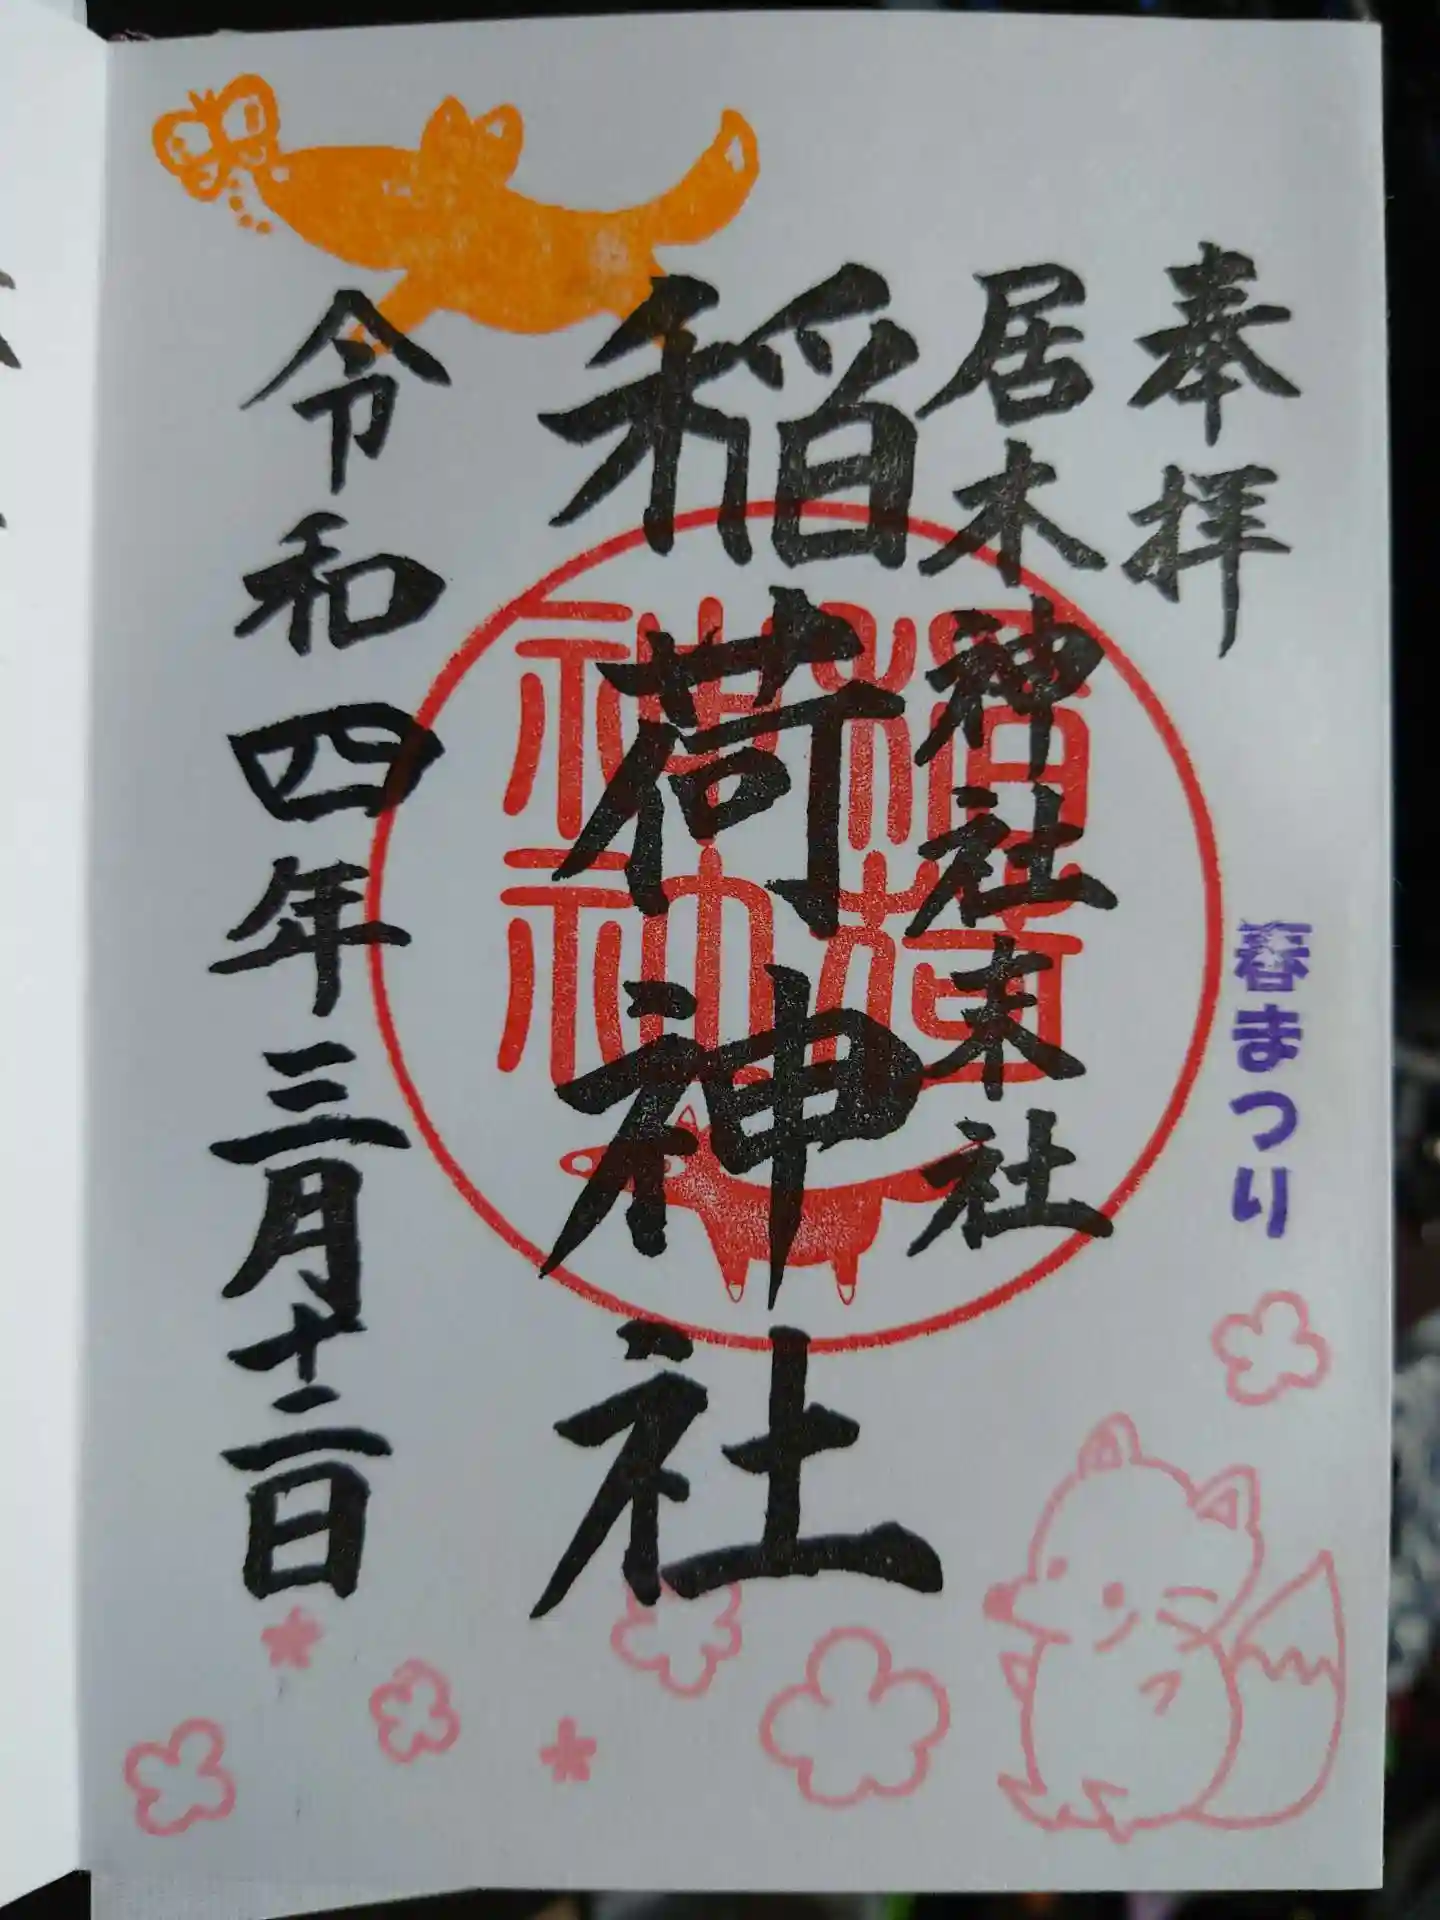 奉拝
春まつり
居木神社末社
稲荷神社
稲荷神社
令和四年三月十二日